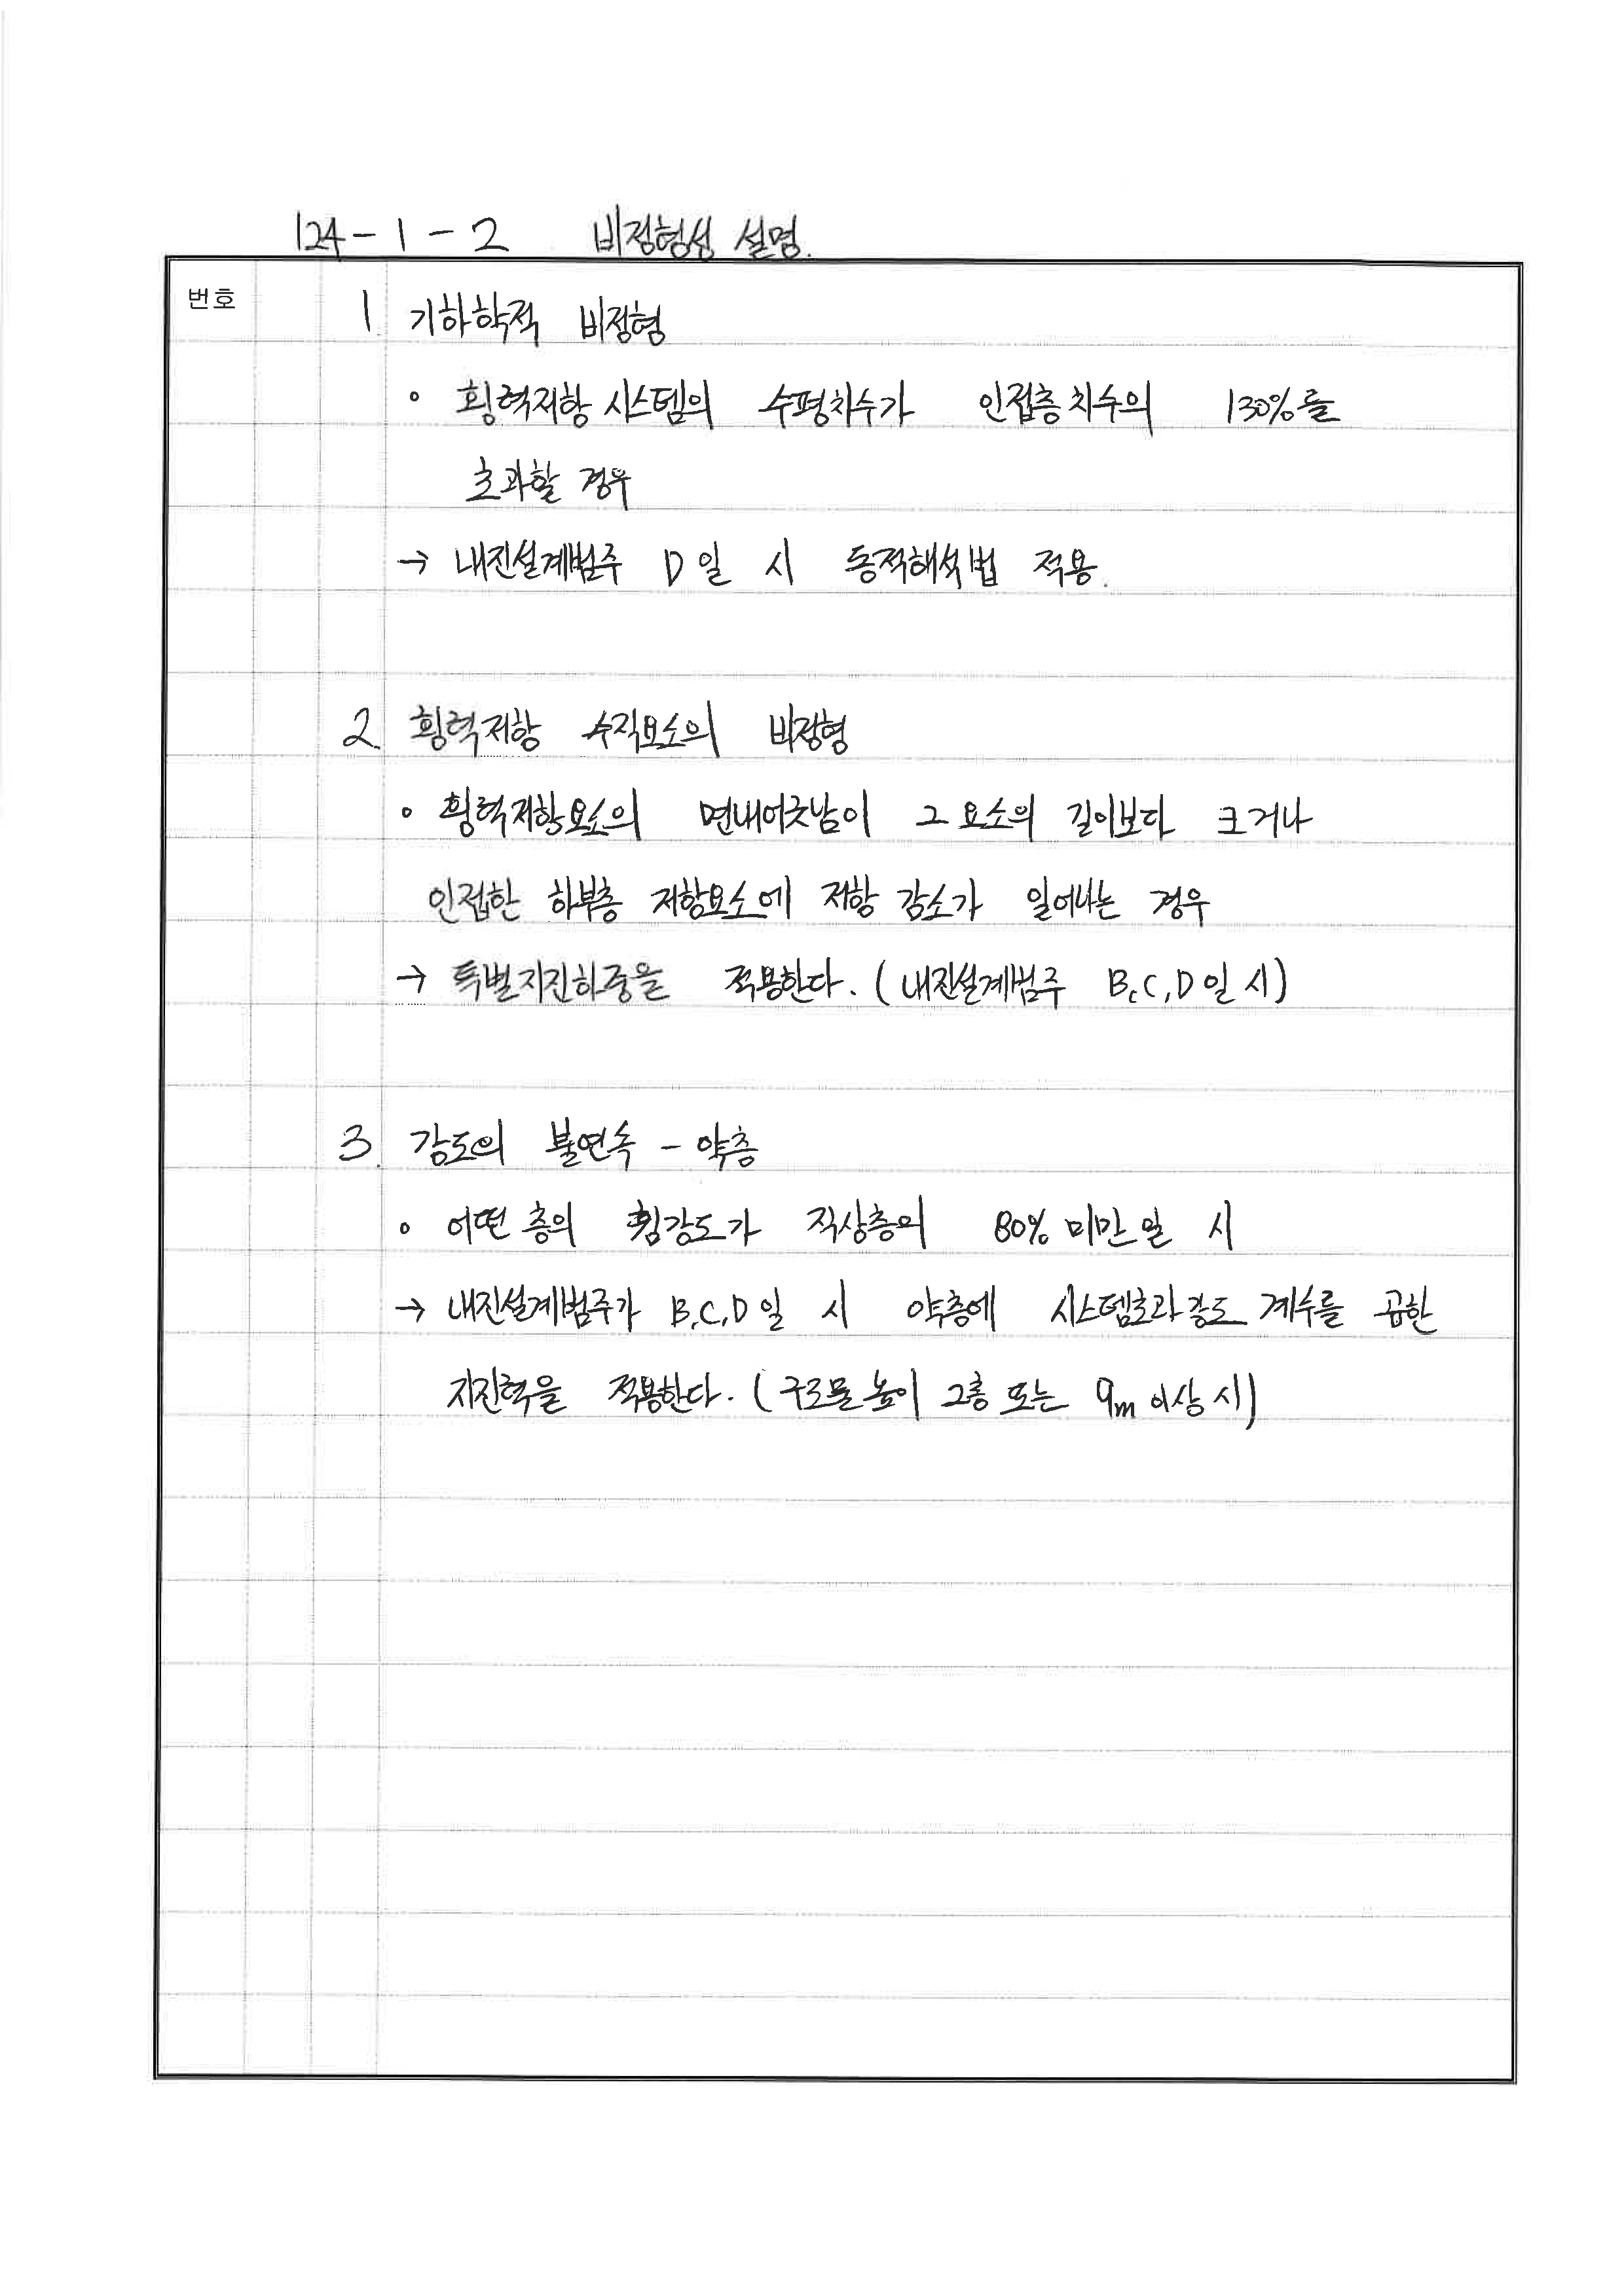 124-1-2 비정형성 설명.
번호
1. 기하학적 비정형
∘ 횡력저항 시스템의 수평치수가 인접층 치수의 130%를
초과할 경우
→ 내진설계범주 D일 시 동적해석법 적용.
2. 횡력저항 수직요소의 비정형
∘ 횡력저항요소의 면내어긋남이 그 요소의 길이보다 크거나
인접한 하부층 저항요소에 저항 감소가 일어나는 경우
→ 특별지진하중을 적용한다. (내진설계범주 B,C,D일 시)
3. 강도의 불연속 - 약층
∘ 어떤 층의 횡강도가 직상층의 80% 미만일 시
→ 내진설계범주가 B,C,D일 시 약층에 시스템초과강도 계수를 곱한
지진력을 적용한다. (구조물 높이 2층 또는 9m 이상 시)